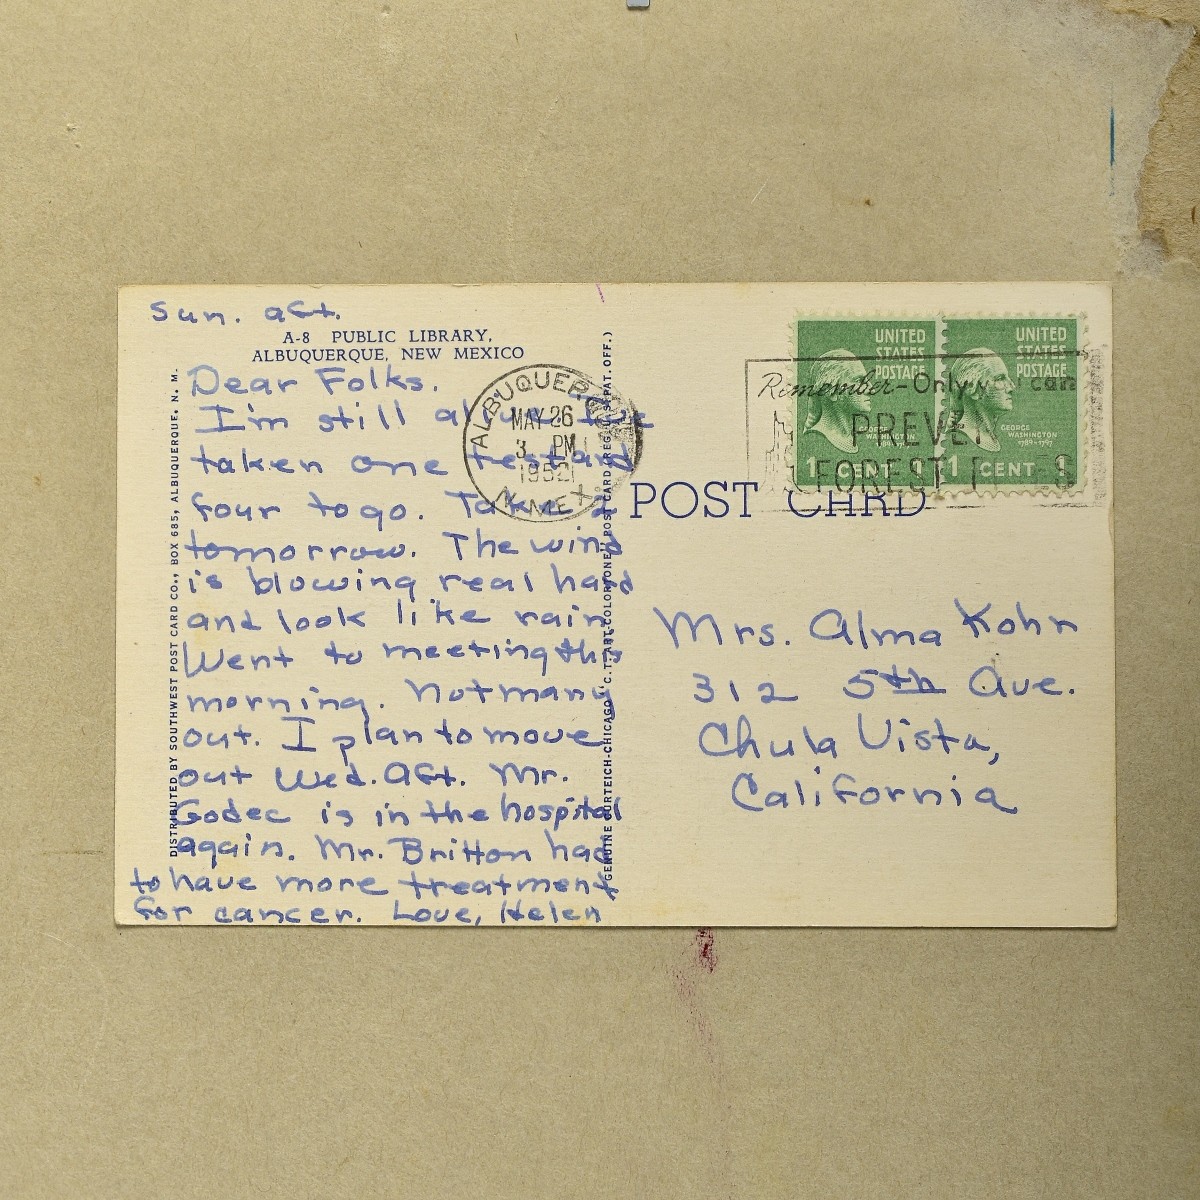 Sun. aft.
A-8 PUBLIC LIBRARY,
ALBUQUERQUE, NEW MEXICO
Dear Folks.
I'm still
taken one test and
four to go. Take 2
tomorrow. The wind
is blowing real hard
and look like rain
Went to meeting this
morning. Not many
out. I plan to move
out Wed. aft. Mr.
Godec is in the hospital
again. Mr. Britton had
to have more treatment
for cancer. Love, Helen
DISTRIBUTED BY SOUTHWEST POST CARD CO., BOX 685, ALBUQUERQUE, N. M.
GENUINE CURTEICH-CHICAGO "C. T. ART-COLORTONE" POST CARD (REG. U. S. PAT. OFF.)
ALBUQUERQUE
MAY 26
3 PM
1952
N. MEX.
UNITED
STATES
POSTAGE
GEORGE
WASHINGTON
1789-1797
1 CENT 1
UNITED
STATES
POSTAGE
GEORGE
WASHINGTON
1789-1797
1 CENT 1
Remember-Only you can
PREVE
FOREST
POST CARD
Mrs. Alma Kohn
312 5th Ave.
Chula Vista,
California